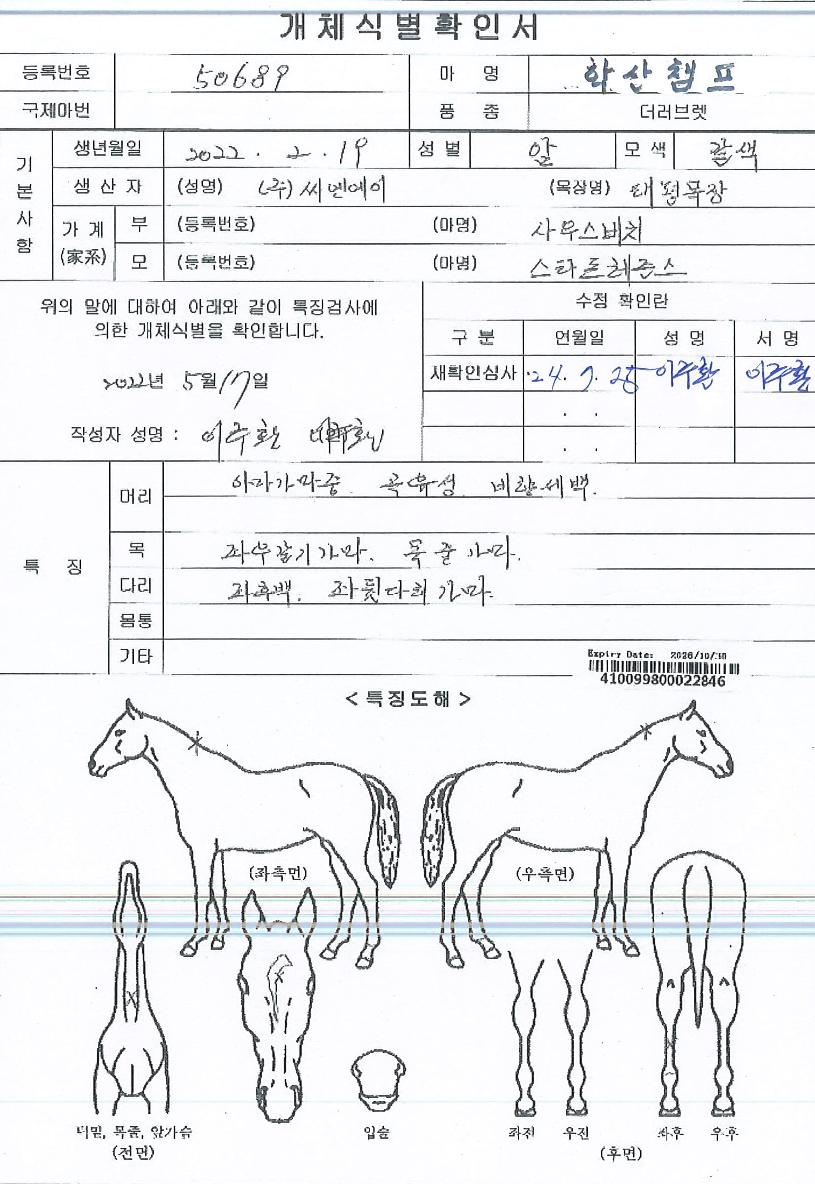 개체식별확인서
등록번호 50689 마 명 학산챔프
국제마번 품 종 더러브렛
기본사항
생년월일 2022. 2. 19 성별 암 모색 갈색
생산자 (성명) (주)씨엔에이 (목장명) 태평목장
가계(家系) 부 (등록번호) (마명) 사우스비치
모 (등록번호) (마명)
위의 말에 대하여 아래와 같이 특징검사에
의한 개체식별을 확인합니다.
2022년 5월 17일
작성자 성명 : 이주환 이주환
수정 확인란
구분 연월일 성명 서명
재확인심사 '24. 7. 25 이주환 이주환
특 징
머리 이마가마중 곡유성 비량세백.
목 좌우갈기가마. 목줄가마.
다리 좌후백.
몸통
기타
Expiry Date: 2026/10/30
410099800022846
< 특징도해 >
(좌측면) (우측면)
턱밑, 목줄, 앞가슴
(전면)
입술
좌전 우전 좌후 우후
(후면)